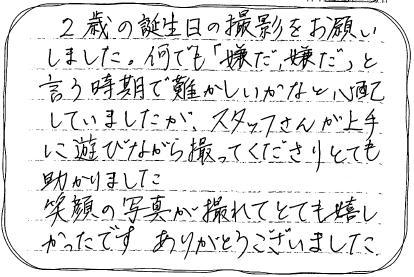 2歳の誕生日の撮影をお願い
しました。何でも「嫌だ、嫌だ」と
言う時期で難かしいかなと心配
していましたが、スタッフさんが上手
に遊びながら撮ってくださりとても
助かりました
笑顔の写真が撮れてとても嬉し
かったです ありがとうございました